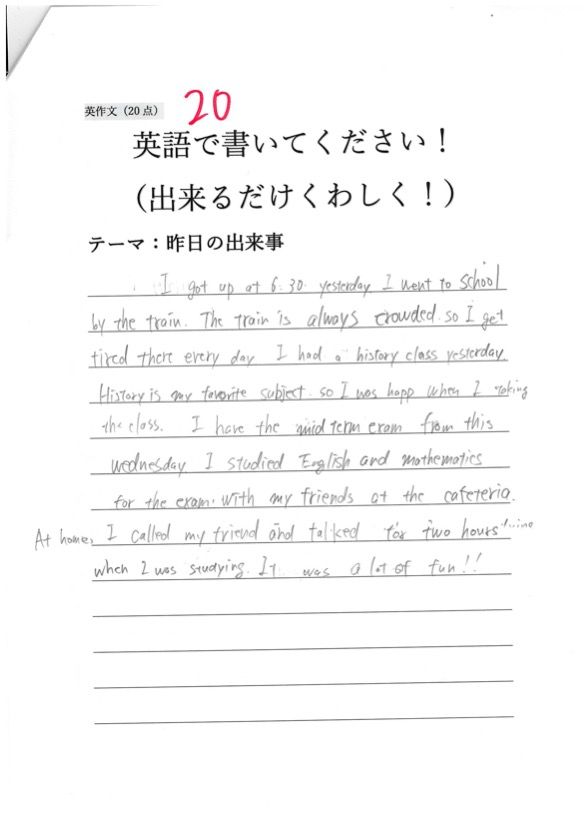 英作文（20 点）
20
英語で書いてください！
（出来るだけくわしく！）
テーマ：昨日の出来事
I got up at 6:30 yesterday I went to school
by the train. The train is always crowded. so I get
tired there every day I had a history class yesterday.
History is my favorite subject. so I was happ when I taking
the class. I have the mid term exam from this
wednesday I studied English and mathematics
for the exam. with my friends at the cafeteria.
At home, I called my friend and talked for two hours
when I was studying. It was a lot of fun!!